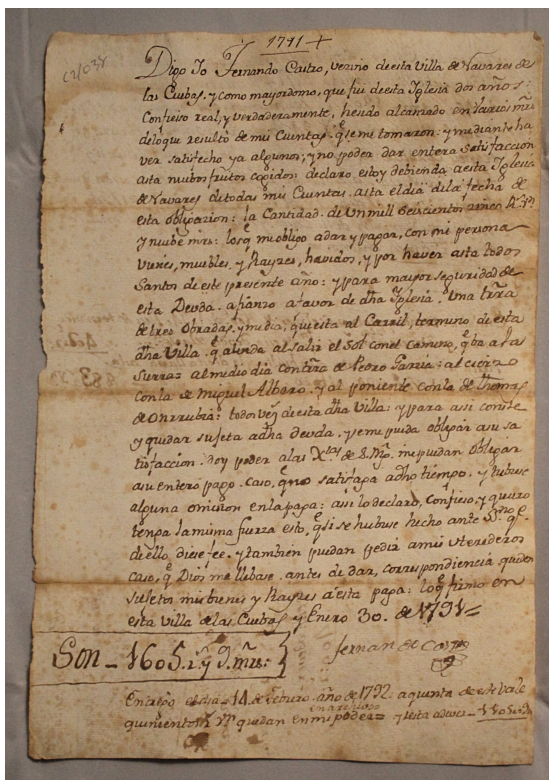 1791 +
C2/038
Digo Yo Fernando Castro, vecino de esta Villa de Navares de
las Cuebas, y como mayordomo, que fui de esta Iglesia dos años:
Confieso real, y verdaderamente, hesido alcanzado en varios mrs
delo que resultó de mis Cuentas, qe. seme tomaron: y mediante ha
ver satisfecho ya algunos; y no poder dar entera satisfaccion
asta nuebos frutos copidos declaro, estoy debiendo, a esta Iglesia
de Navares de todas mis Cuentas, asta el dia dela fecha de
esta oblipazion: la Cantidad de Un mill seiscientos zinco Rs. Vn
y nuebe mrs: los qe. me oblipo a dar y papar, con mi persona
vienes, muebles, y Rayzes, havidos, y por haver asta todos
Santos de este presente año: y para mayor seguridad de
esta Deuda, afianzo a favor de dha Iglesia, Una trra
de tres Obradas, y media, que esta al Carril, termino de esta
dha Villa, qe. alinda al salir el Sol con el Camino, qe. ba a la
Surra: al medio dia con trra de Pedro Garzia: al cierzo
con la de Miguel Albaro, y al poniente con la de thomas
de Onrrubia: todos vez. de esta dha Villa: y para asi conste
y quedar sujeta a dha deuda, y seme pueda oblipar a su sa
tisfaccion, doy poder a las Xtas. de S. Mg. me puedan oblipar
a su entero papo, caso, qe. no satisfapa a dho tiempo, y tubiese
alguna omision en la papa: asi lo declaro, confieso, y quiero
tenpa la misma fuerza esto, qe. si se hubiese hecho ante Sno. qe.
de ello, diese fee, y tambien puedan pedir a mis Erederos
caso, qe. Dios me llebase, antes de dar, correspondiencia queden
sujetos mis bienes, y Rayzes a esta papa: lo qe. firmo en
esta Villa de las Cuebas, y Enero 30. de 1791=
Son - 1605. rs. y 9. mrs:
Fernan de Castro
En el dia - 14 de Febrero año de 1792 a quenta de este vale
quinientos rs. quedan en mi poder= y resta a dever - 1105